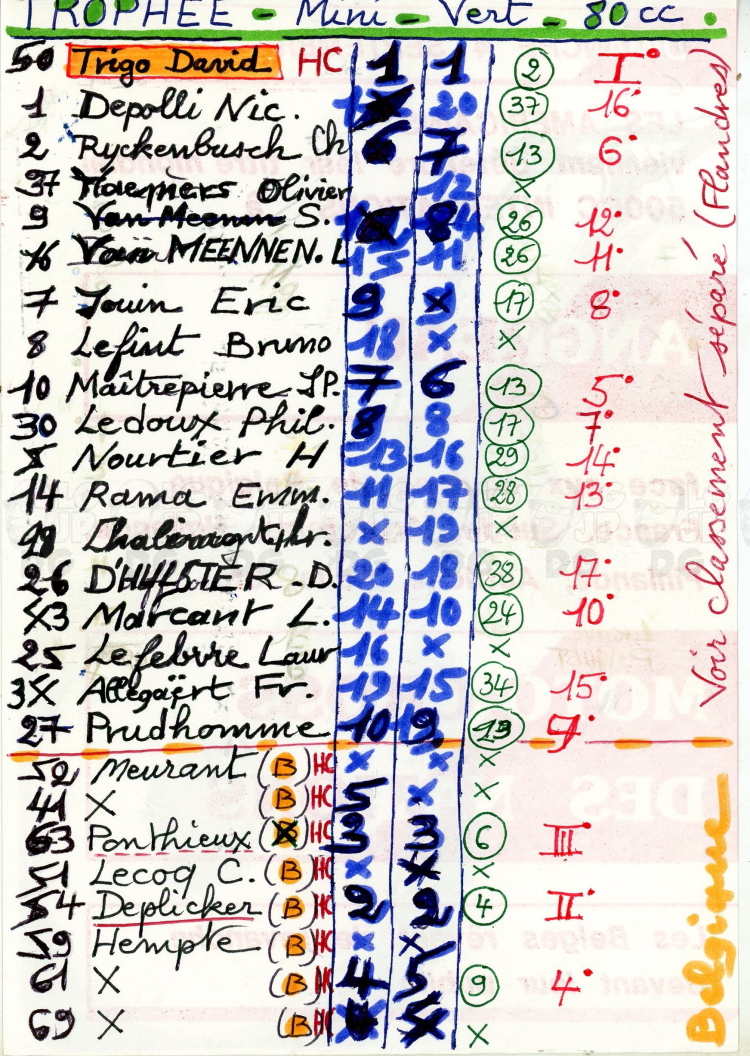 TROPHEE - Mini - Vert - 80cc.
50 Trigo David HC 1 1 2 I°
1 Depolli Nic. 20 37 16°
2 Ryckenbusch Ch 6 7 13 6°
37 Haemers Olivier 12 x
9 Van Meenen S. 26 12°
Van MEENNEN. L 15 11 26 11°
7 Jouin Eric 9 x 17 8°
8 Lefint Bruno 18 x x
10 Maîtrepierre JP. 7 6 13 5°
30 Ledoux Phil. 8 8 17 7°
Nourtier H 13 16 29 14°
14 Rama Emm. 11 17 28 13°
x 19 x
26 D. 20 18 38 17°
Marcant L. 14 10 24 10°
25 Lefebvre Laur 16 x x
Allegaërt Fr. 19 15 34 15°
27 Prudhomme 10 9 19 9°
52 Meurant (B) HC x x x
41 X (B) HC 5 x x
63 Ponthieux HC 3 3 6 III°
51 Lecoq C. (B) HC x x x
54 Deplicker (B) HC 2 2 4 II°
59 Hempte (B) HC x x
61 X (B) HC 4 5 9 4°
69 X (B) HC x x
Voir classement séparé (Flandres)
Belgique